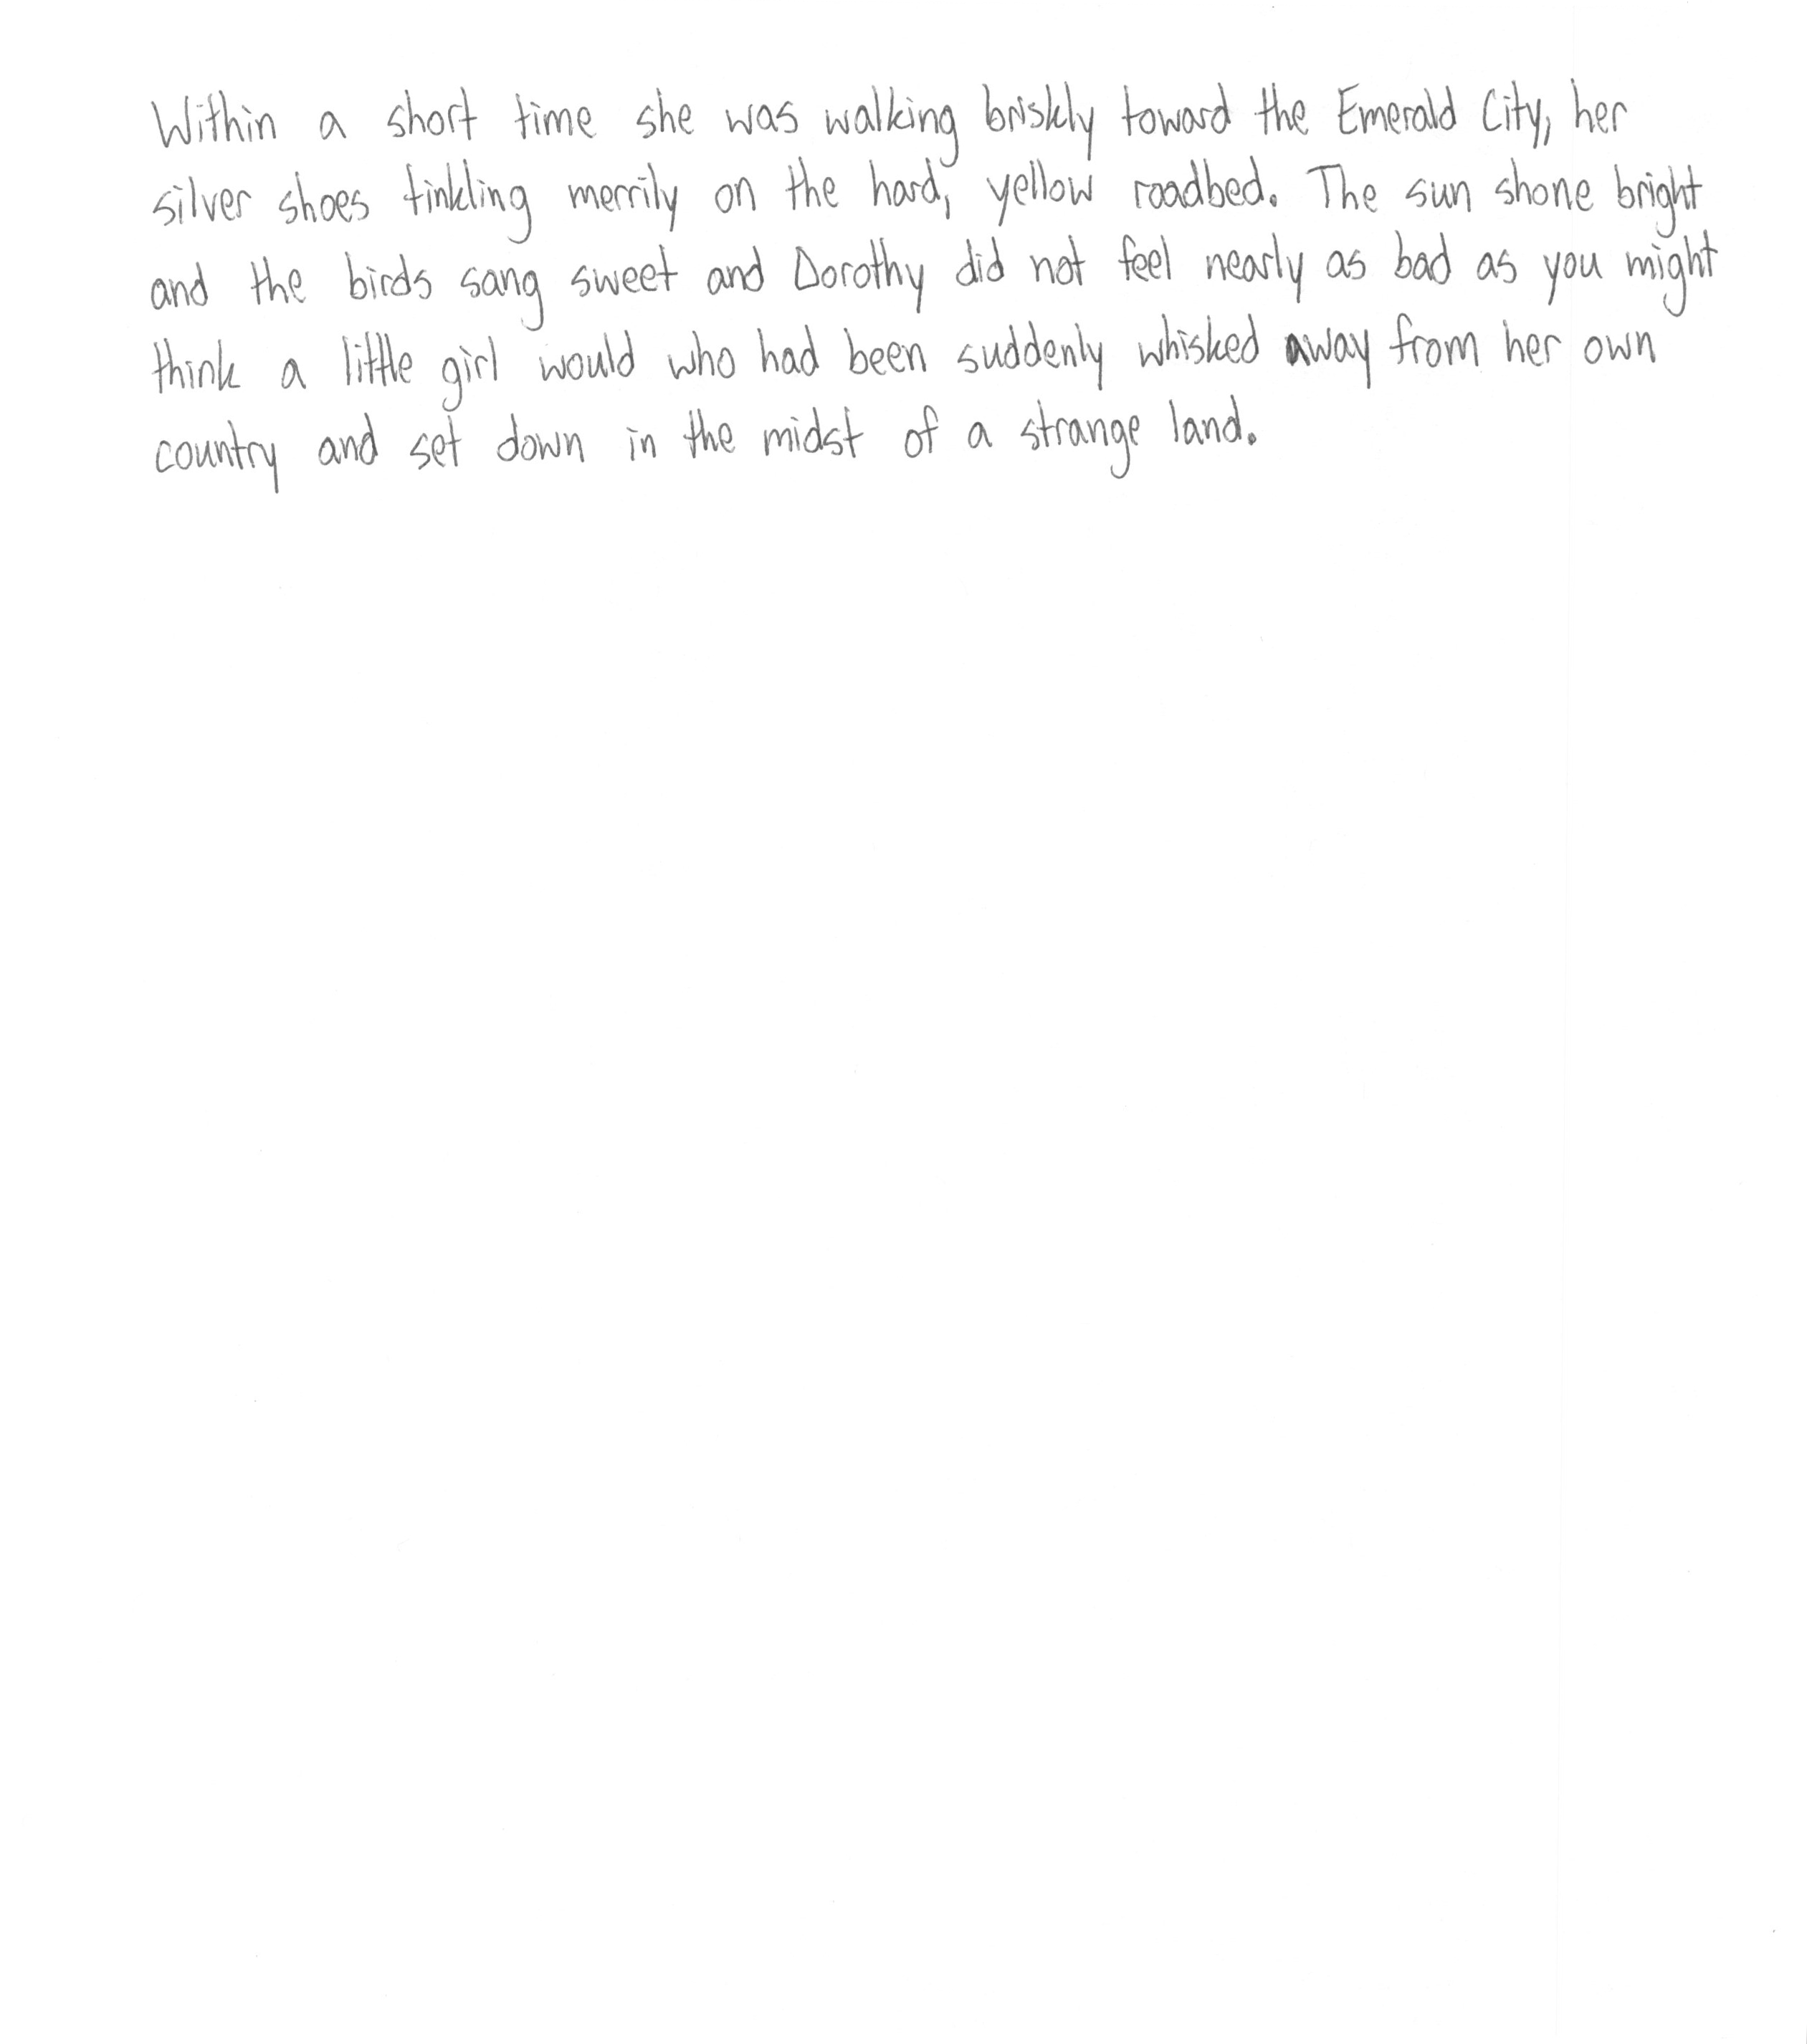 Within a short time she was walking briskly toward the Emerald City, her
silver shoes tinkling merrily on the hard, yellow roadbed. The sun shone bright
and the birds sang sweet and Dorothy did not feel nearly as bad as you might
think a little girl would who had been suddenly whisked away from her own
country and set down in the midst of a strange land.